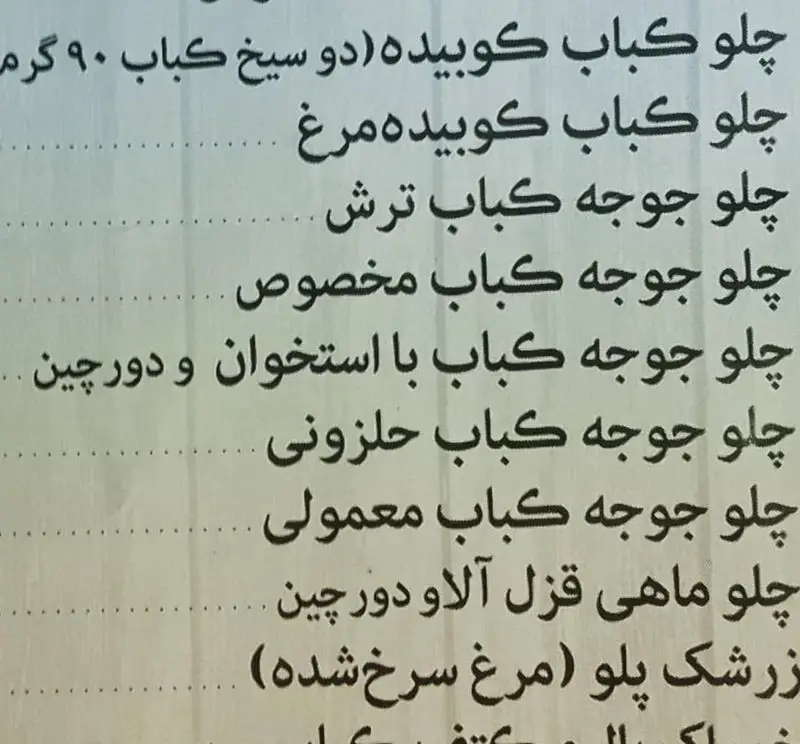 چلو کباب کوبیده(دو سیخ کباب ۹۰ گرم
چلو کباب کوبیده‌مرغ
چلو جوجه کباب ترش
چلو جوجه کباب مخصوص
چلو جوجه کباب با استخوان و دورچین
چلو جوجه کباب حلزونی
چلو جوجه کباب معمولی
چلو ماهی قزل آلاو دورچین
زرشک پلو (مرغ سرخ‌شده)